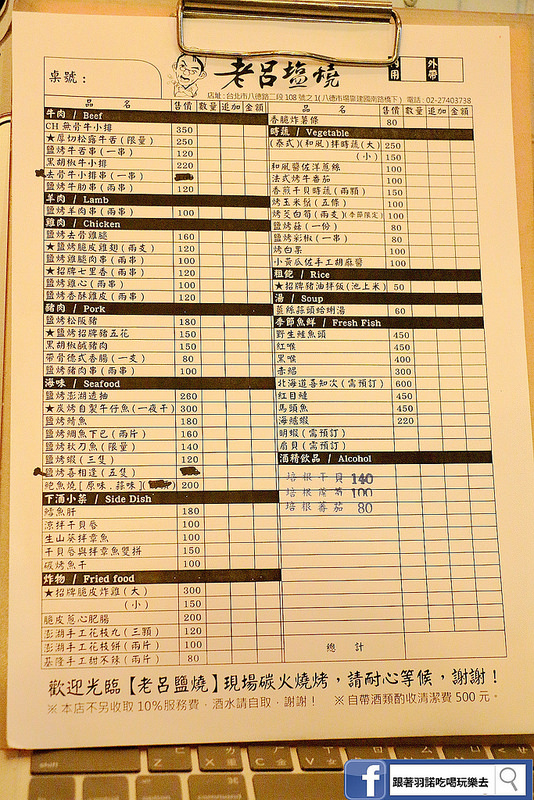 桌號：
老呂塩燒
內用
外帶
店址：台北市八德路二段108號之1(八德市場靠建國南路橋下) 電話：02-27403738
品 名 售價 數量 追加 金額
牛肉 / Beef
CH無骨牛小排 350
★厚切松露牛舌(限量) 250
鹽烤牛舌(一串) 120
黑胡椒牛小排 220
去骨牛小排串(一串)
鹽烤牛肋串(兩串) 120
羊肉 / Lamb
鹽烤羊肉串(兩串) 100
雞肉 / Chicken
鹽烤去骨雞腿 160
★鹽烤脆皮雞翅(兩支) 120
鹽烤雞腿肉串(兩串) 100
★招牌七里香(兩串) 120
鹽烤雞心(兩串) 100
鹽烤香酥雞皮(兩串) 120
豬肉 / Pork
鹽烤松阪豬 180
★鹽烤招牌豬五花 150
黑胡椒鹹豬肉 150
帶骨德式香腸(一支) 80
鹽烤豬肉串(兩串) 100
海味 / Seafood
鹽烤澎湖透抽 260
★炭烤自製午仔魚(一夜干) 300
鹽烤鯖魚 180
鹽烤鯛魚下巴(兩片) 160
鹽烤秋刀魚(限量) 140
鹽烤蝦(三隻) 120
鹽烤喜相逢(五隻)
鮑魚燒[原味.蒜味] 200
下酒小菜 / Side Dish
鱈魚肝 180
涼拌干貝唇 100
生山葵拌章魚 100
干貝唇與拌章魚雙拼 150
碳烤魚干 100
炸物 / Fried food
★招牌脆皮炸雞(大) 300
(小) 150
脆皮蔥心肥腸 200
澎湖手工花枝丸(三顆) 120
澎湖手工花枝餅(兩片) 100
基隆手工甜不辣(兩片) 80
品 名 售價 數量 追加 金額
香脆炸薯條 80
時蔬 / Vegetable
(泰式)(和風)拌時蔬(大) 250
(小) 150
和風醬佐洋蔥絲 100
法式烤牛番茄 100
香煎干貝時蔬(兩顆) 150
烤玉米筍(五條) 100
烤茭白筍(兩支)(季節限定) 100
鹽烤菇(一份) 80
鹽烤彩椒(一串) 80
烤白果 100
小黃瓜佐手工胡麻醬 100
粗飽 / Rice
★招牌豬油拌飯(池上米) 50
湯 / Soup
薑絲蒜頭蛤蜊湯 60
季節魚鮮 / Fresh Fish
野生鮭魚頭 450
紅喉 450
黑喉 400
赤鯮 300
北海道喜知次(需預訂) 600
紅目鰱 450
馬頭魚 450
海鱺蝦 220
明蝦(需預訂)
扇貝(需預訂)
酒精飲品 / Alcohol
培根干貝 140
培根蘆筍 100
培根番茄 80
總 計
歡迎光臨【老呂鹽燒】現場碳火燒烤，請耐心等候，謝謝！
※本店不另收取10%服務費，酒水請自取，謝謝！ ※自帶酒類酌收清潔費500元。
跟著羽諾吃喝玩樂去